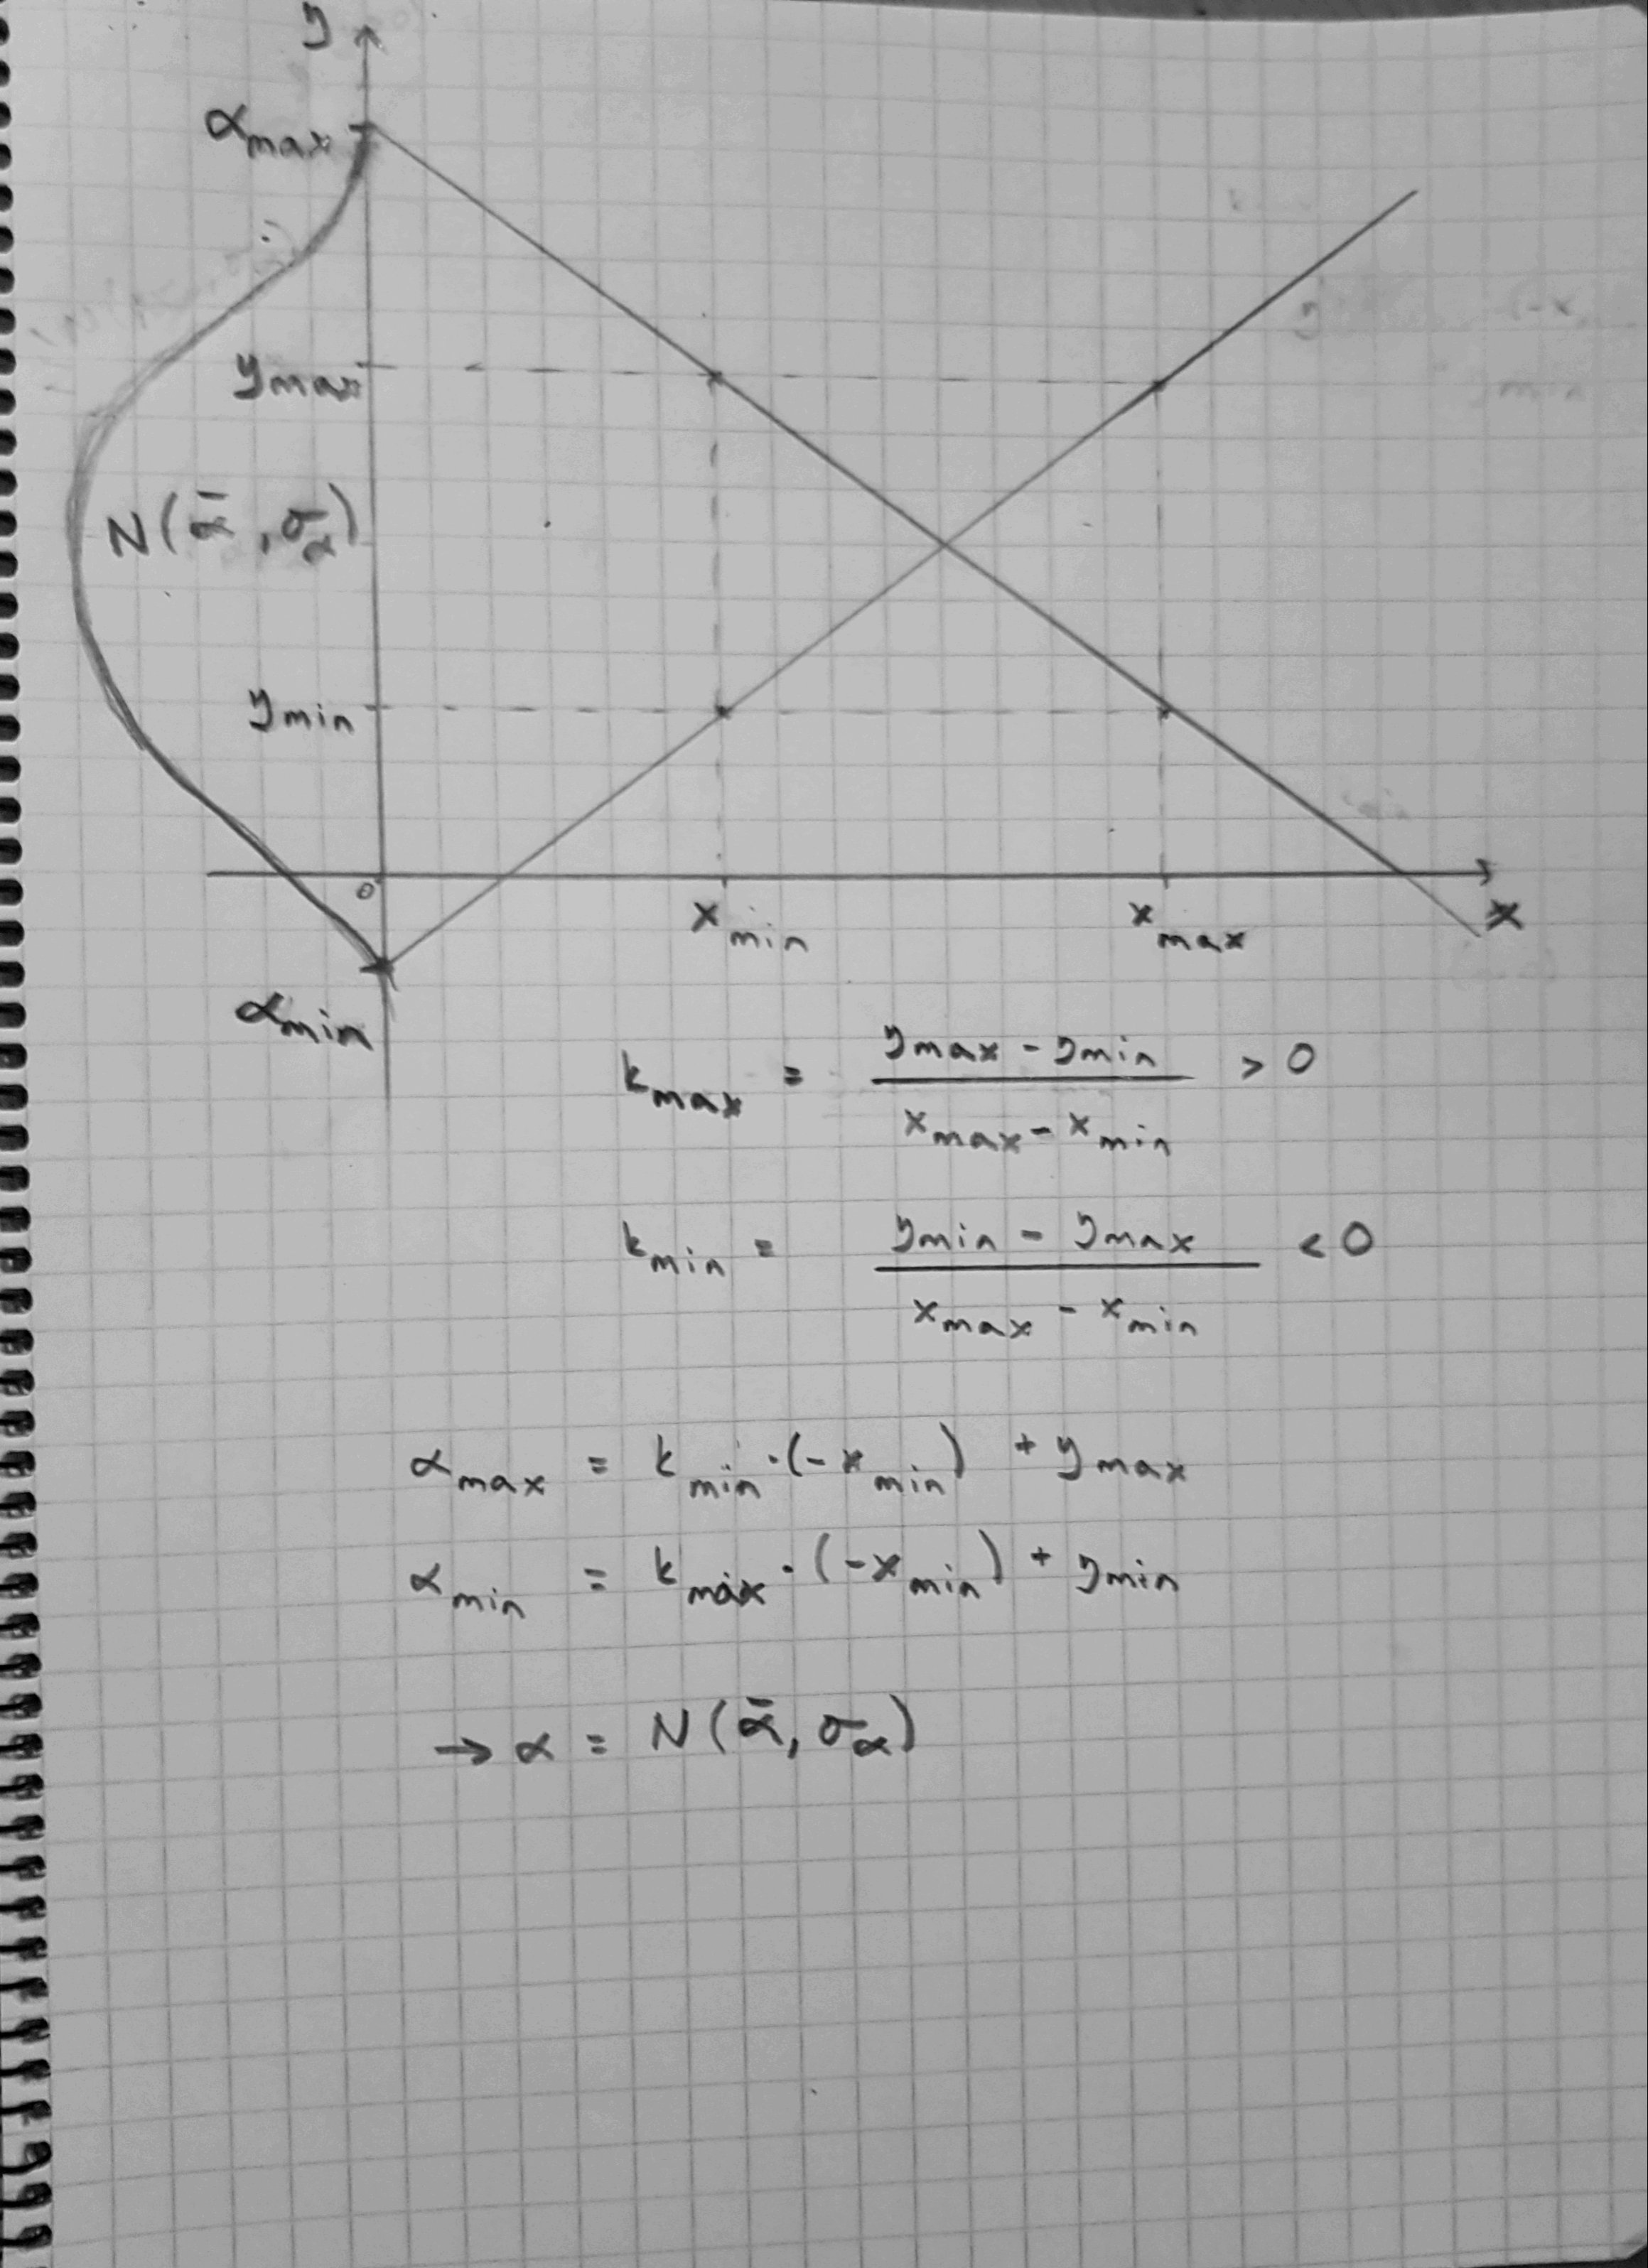 y
α_max
y_max
N(ᾱ, σ_α)
y_min
0
x_min x_max x
α_min
k_max = (y_max - y_min) / (x_max - x_min) > 0
k_min = (y_min - y_max) / (x_max - x_min) < 0
α_max = k_min · (-x_min) + y_max
α_min = k_max · (-x_min) + y_min
→ α = N(ᾱ, σ_α)